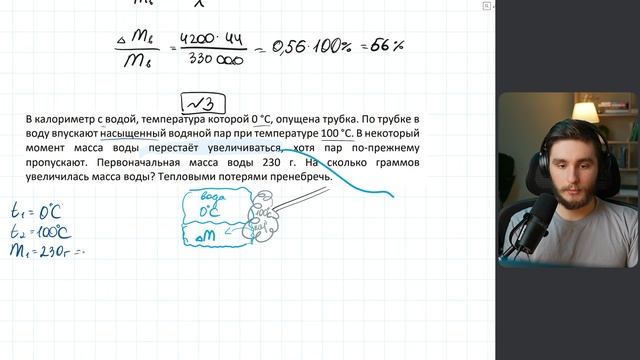 ΔMв/Mв = 4200·44/330 000 = 0,56·100% = 56%
№3
В калориметр с водой, температура которой 0 °С, опущена трубка. По трубке в
воду впускают насыщенный водяной пар при температуре 100 °С. В некоторый
момент масса воды перестаёт увеличиваться, хотя пар по-прежнему
пропускают. Первоначальная масса воды 230 г. На сколько граммов
увеличилась масса воды? Тепловыми потерями пренебречь.
вода
0°C
100°C
пар
ΔM
t₁ = 0°C
t₂ = 100°C
M₁ = 230г =